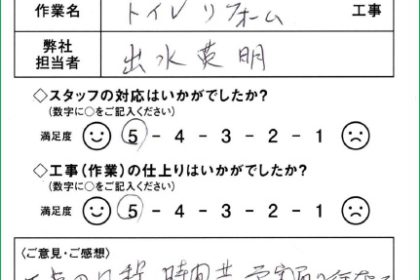 作業名 トイレリフォーム 工事
弊社担当者 出水英明
◇スタッフの対応はいかがでしたか?
(数字に○をご記入ください)
満足度 5 - 4 - 3 - 2 - 1
◇工事(作業)の仕上りはいかがでしたか?
(数字に○をご記入ください)
満足度 5 - 4 - 3 - 2 - 1
〈ご意見・ご感想〉
日程 時間共